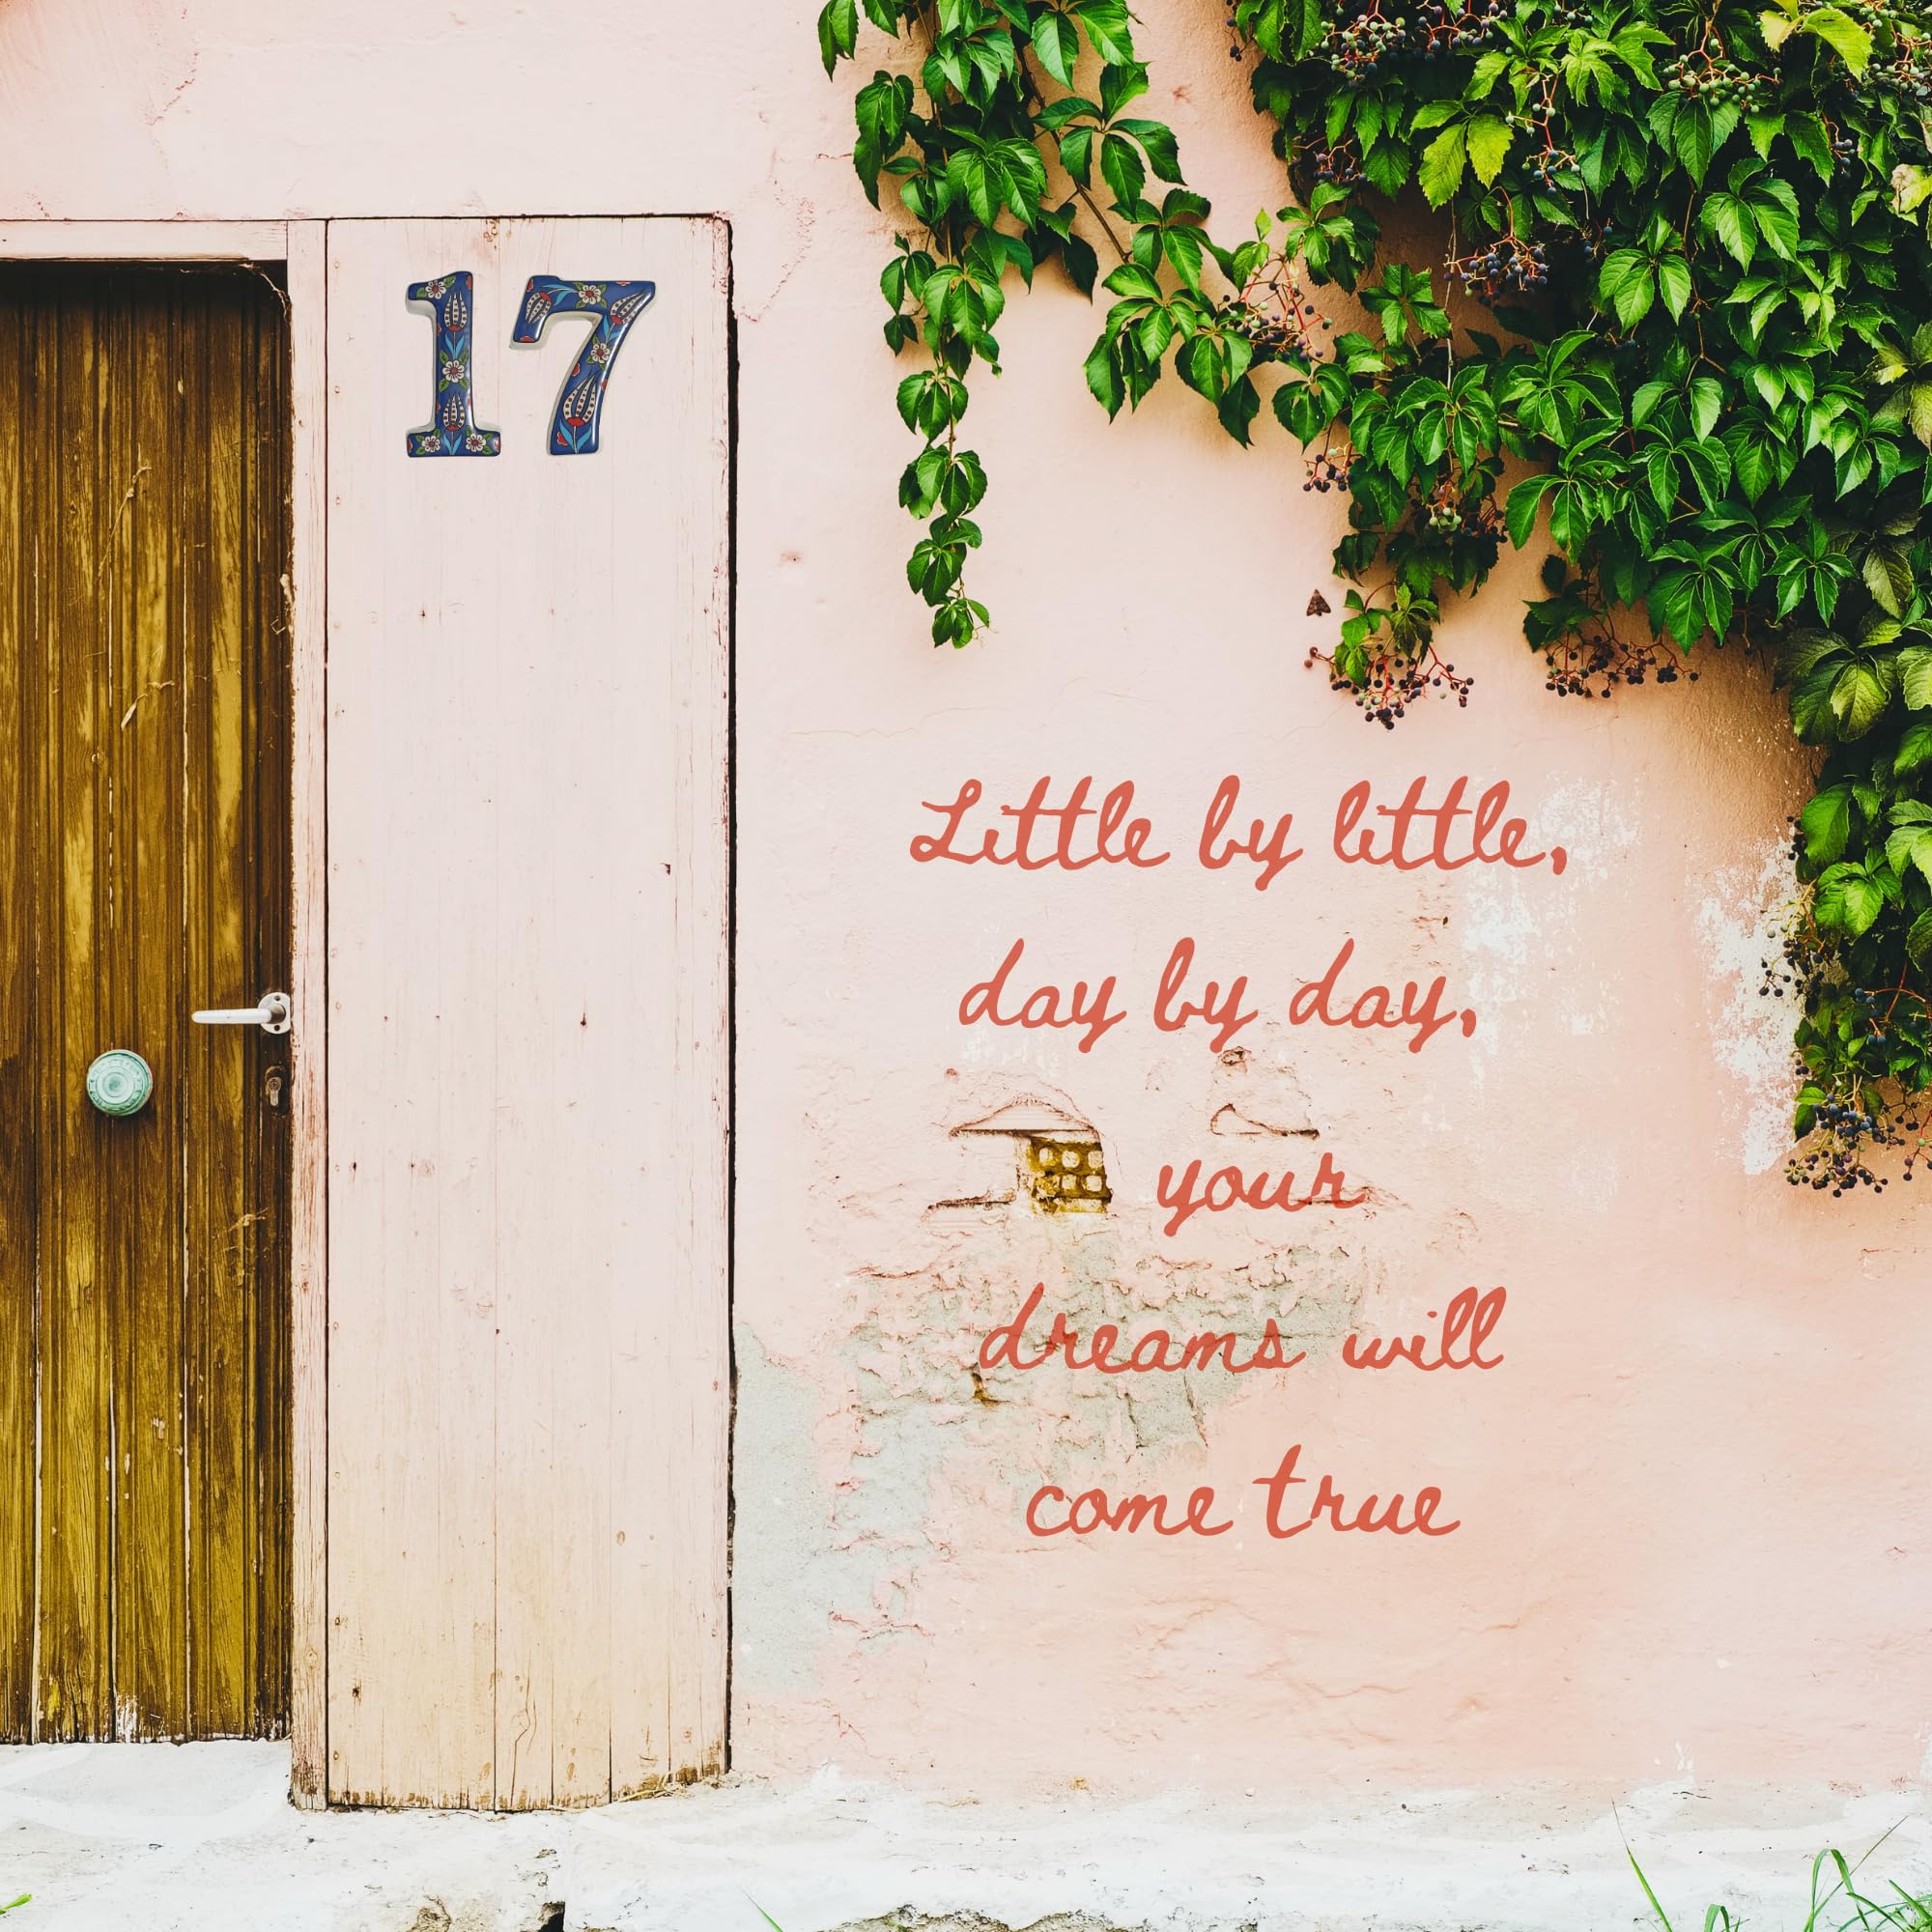 17
Little by little,
day by day,
your
dreams will
come true